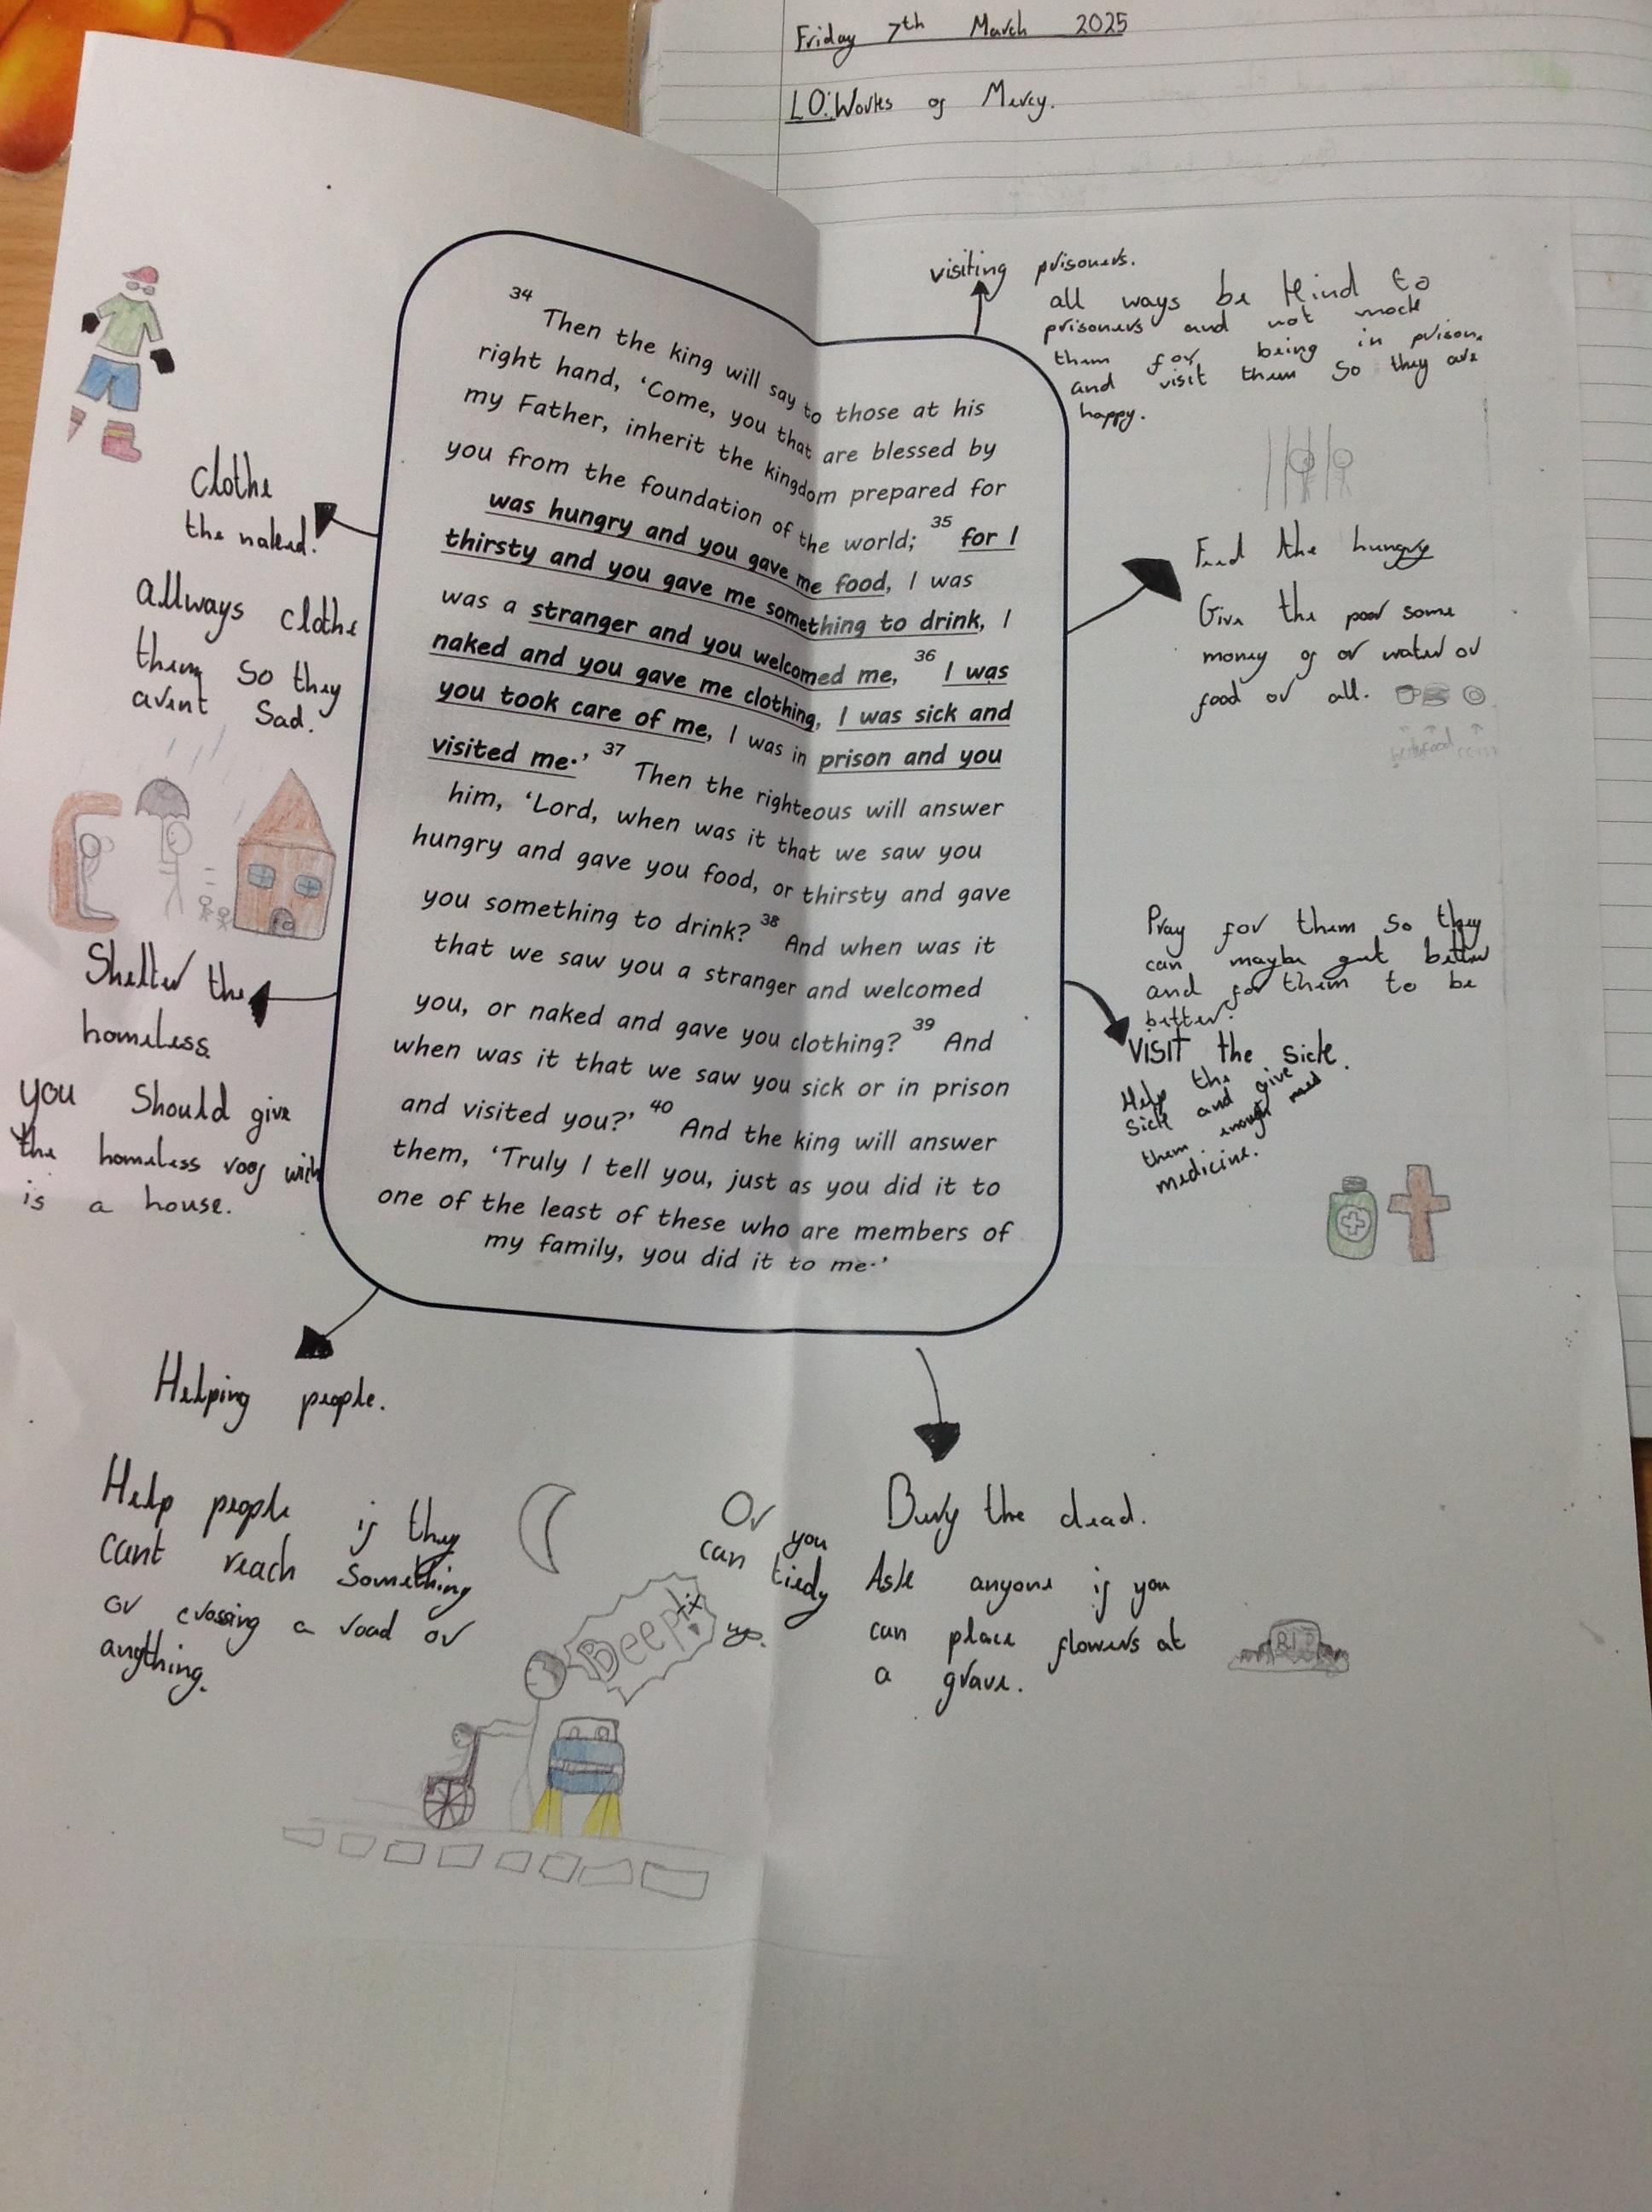 Friday 7th March 2025
LO: Works of Mercy.
34 Then the king will say to those at his
right hand, 'Come, you that are blessed by
my Father, inherit the kingdom prepared for
you from the foundation of the world; 35 for I
was hungry and you gave me food, I was
thirsty and you gave me something to drink, I
was a stranger and you welcomed me, 36 I was
naked and you gave me clothing, I was sick and
you took care of me, I was in prison and you
visited me.' 37 Then the righteous will answer
him, 'Lord, when was it that we saw you
hungry and gave you food, or thirsty and gave
you something to drink? 38 And when was it
that we saw you a stranger and welcomed
you, or naked and gave you clothing? 39 And
when was it that we saw you sick or in prison
and visited you?' 40 And the king will answer
them, 'Truly I tell you, just as you did it to
one of the least of these who are members of
my family, you did it to me.'
visiting prisoners.
all ways be kind to
prisoners and not mock
them for being in prison.
and visit them so they are
happy.
Feed the hungry
Give the poor some
money of or water or
food or all.
Pray for them so they
can maybe get better
and for them to be
better.
VISIT the sick.
Help the
sick and give
them enough med
medicine.
clothe
the naked.
allways clothe
them so they
arent sad.
Shelter the
homeless.
you should give
the homeless roof wich
is a house.
Helping people.
Help people if they
cant reach something
or crossing a road or
anything.
Beep!
Or you
can tiedy
up.
Bury the dead.
Ask anyone if you
can place flowers at
a grave.
RIP